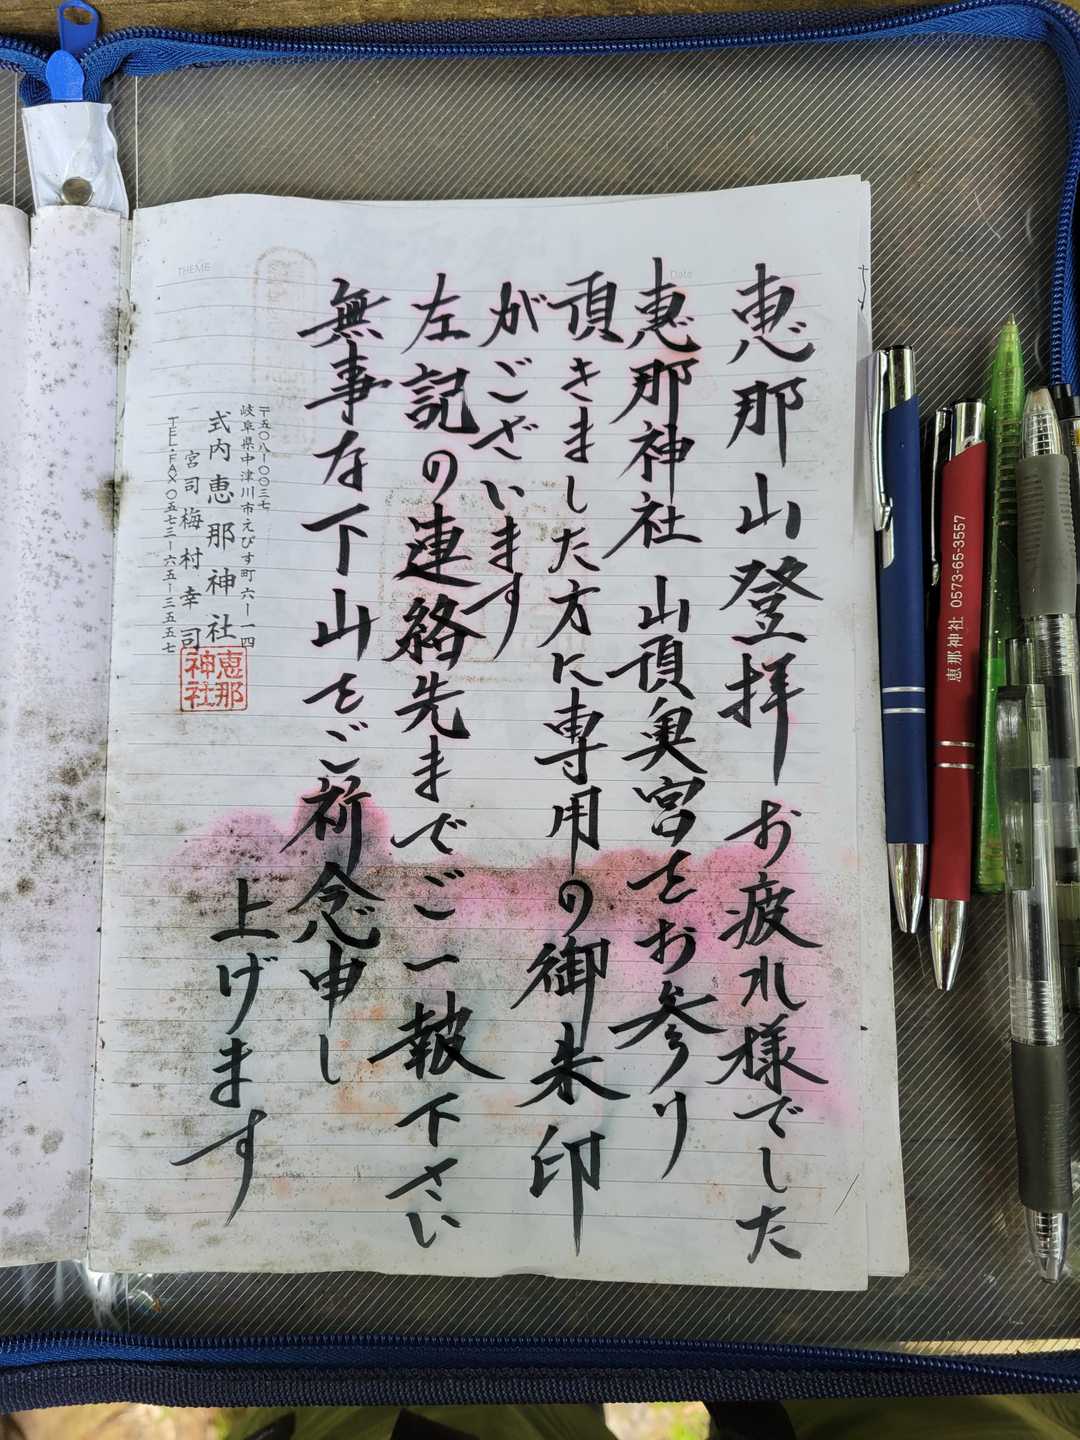 恵那山登拝お疲れ様でした
恵那神社山頂奥宮をお参り
頂きました方に専用の御朱印
がございます
左記の連絡先までご一報下さい
無事な下山をご祈念申し
上げます
〒五〇八ー〇〇三七
岐阜県中津川市えびす町六ー一四
式内恵那神社
宮司梅村幸司
TEL・FAX〇五七三ー六五ー三五五七
恵那
神社
THEME
Date
恵那神社 0573-65-3557